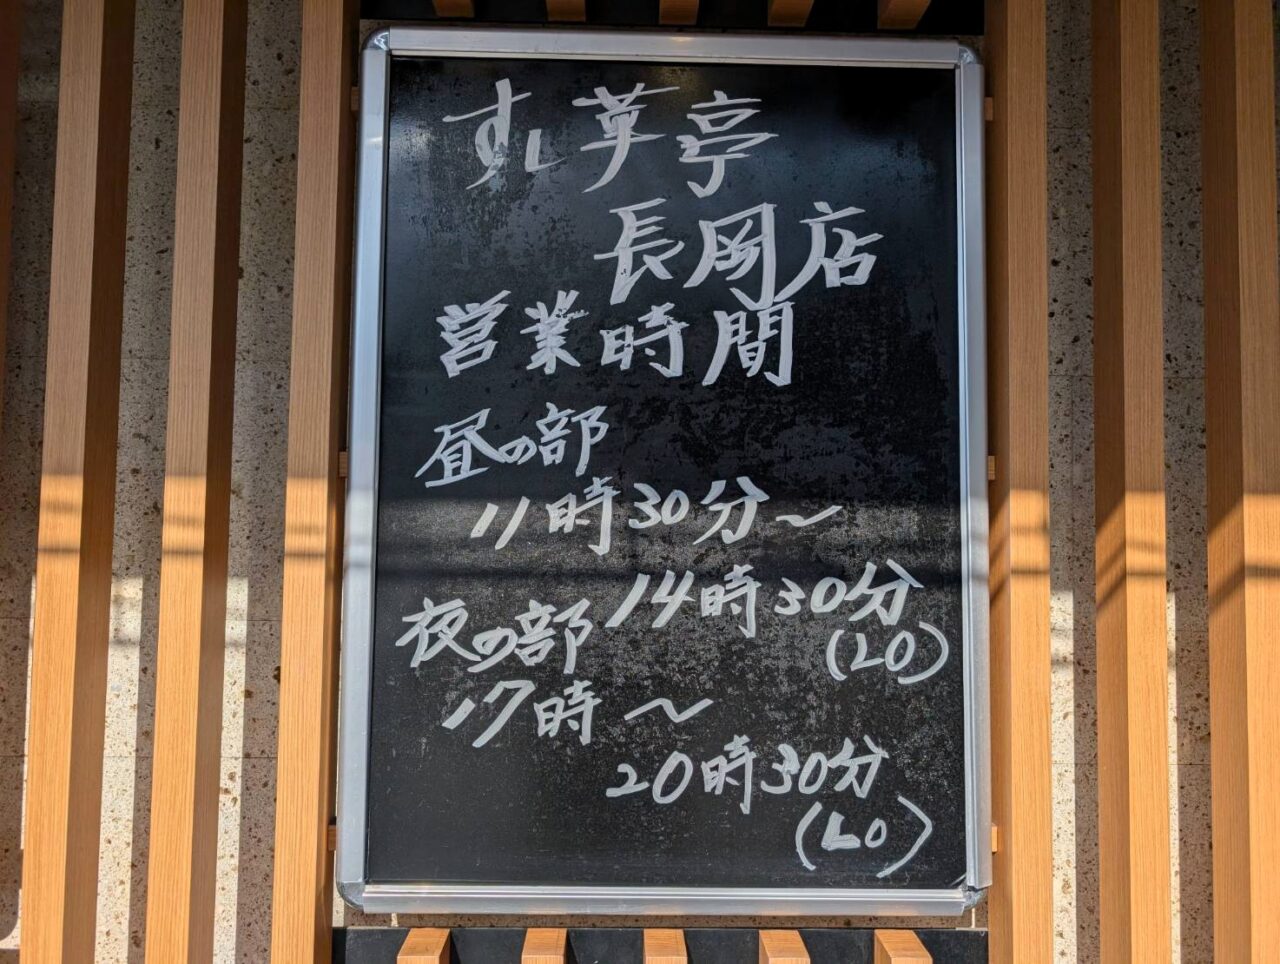 すし華亭
長岡店
営業時間
昼の部
11時30分～
14時30分
(LO)
夜の部
17時～
20時30分
(LO)